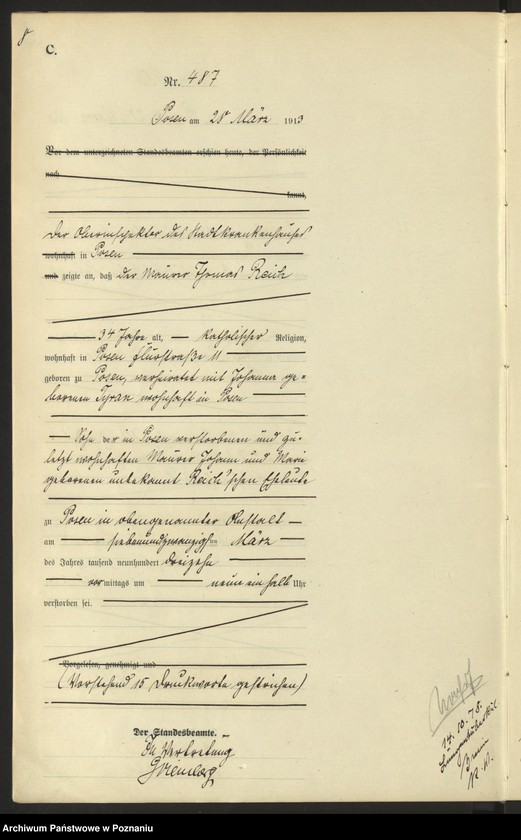 8
C.
Nr. 487
Posen am 28. März 1913
Vor dem unterzeichneten Standesbeamten erschien heute, der Persönlichkeit
nach
kannt,
Der Oberinspektor des Stadtkrankenhauses
wohnhaft in Posen
und zeigte an, daß der Maurer Thomas Reich
34 Jahre alt, katholischer Religion,
wohnhaft in Posen Flurstraße 11
geboren zu Posen, verheiratet mit Johanna ge-
borenen Tyran wohnhaft in Posen
Sohn der in Posen verstorbenen und zu-
letzt wohnhaften Maurer Johann und Marie
geborenen unbekannt Reich'schen Eheleute
zu Posen in obengenannter Anstalt
am siebenundzwanzigsten März
des Jahres tausend neunhundert dreizehn
vormittags um neun ein halb Uhr
verstorben sei.
Vorgelesen, genehmigt und
(Vorstehend 15 Druckworte gestrichen)
Der Standesbeamte.
In Vertretung
14. 10. 78.
Archiwum Państwowe w Poznaniu